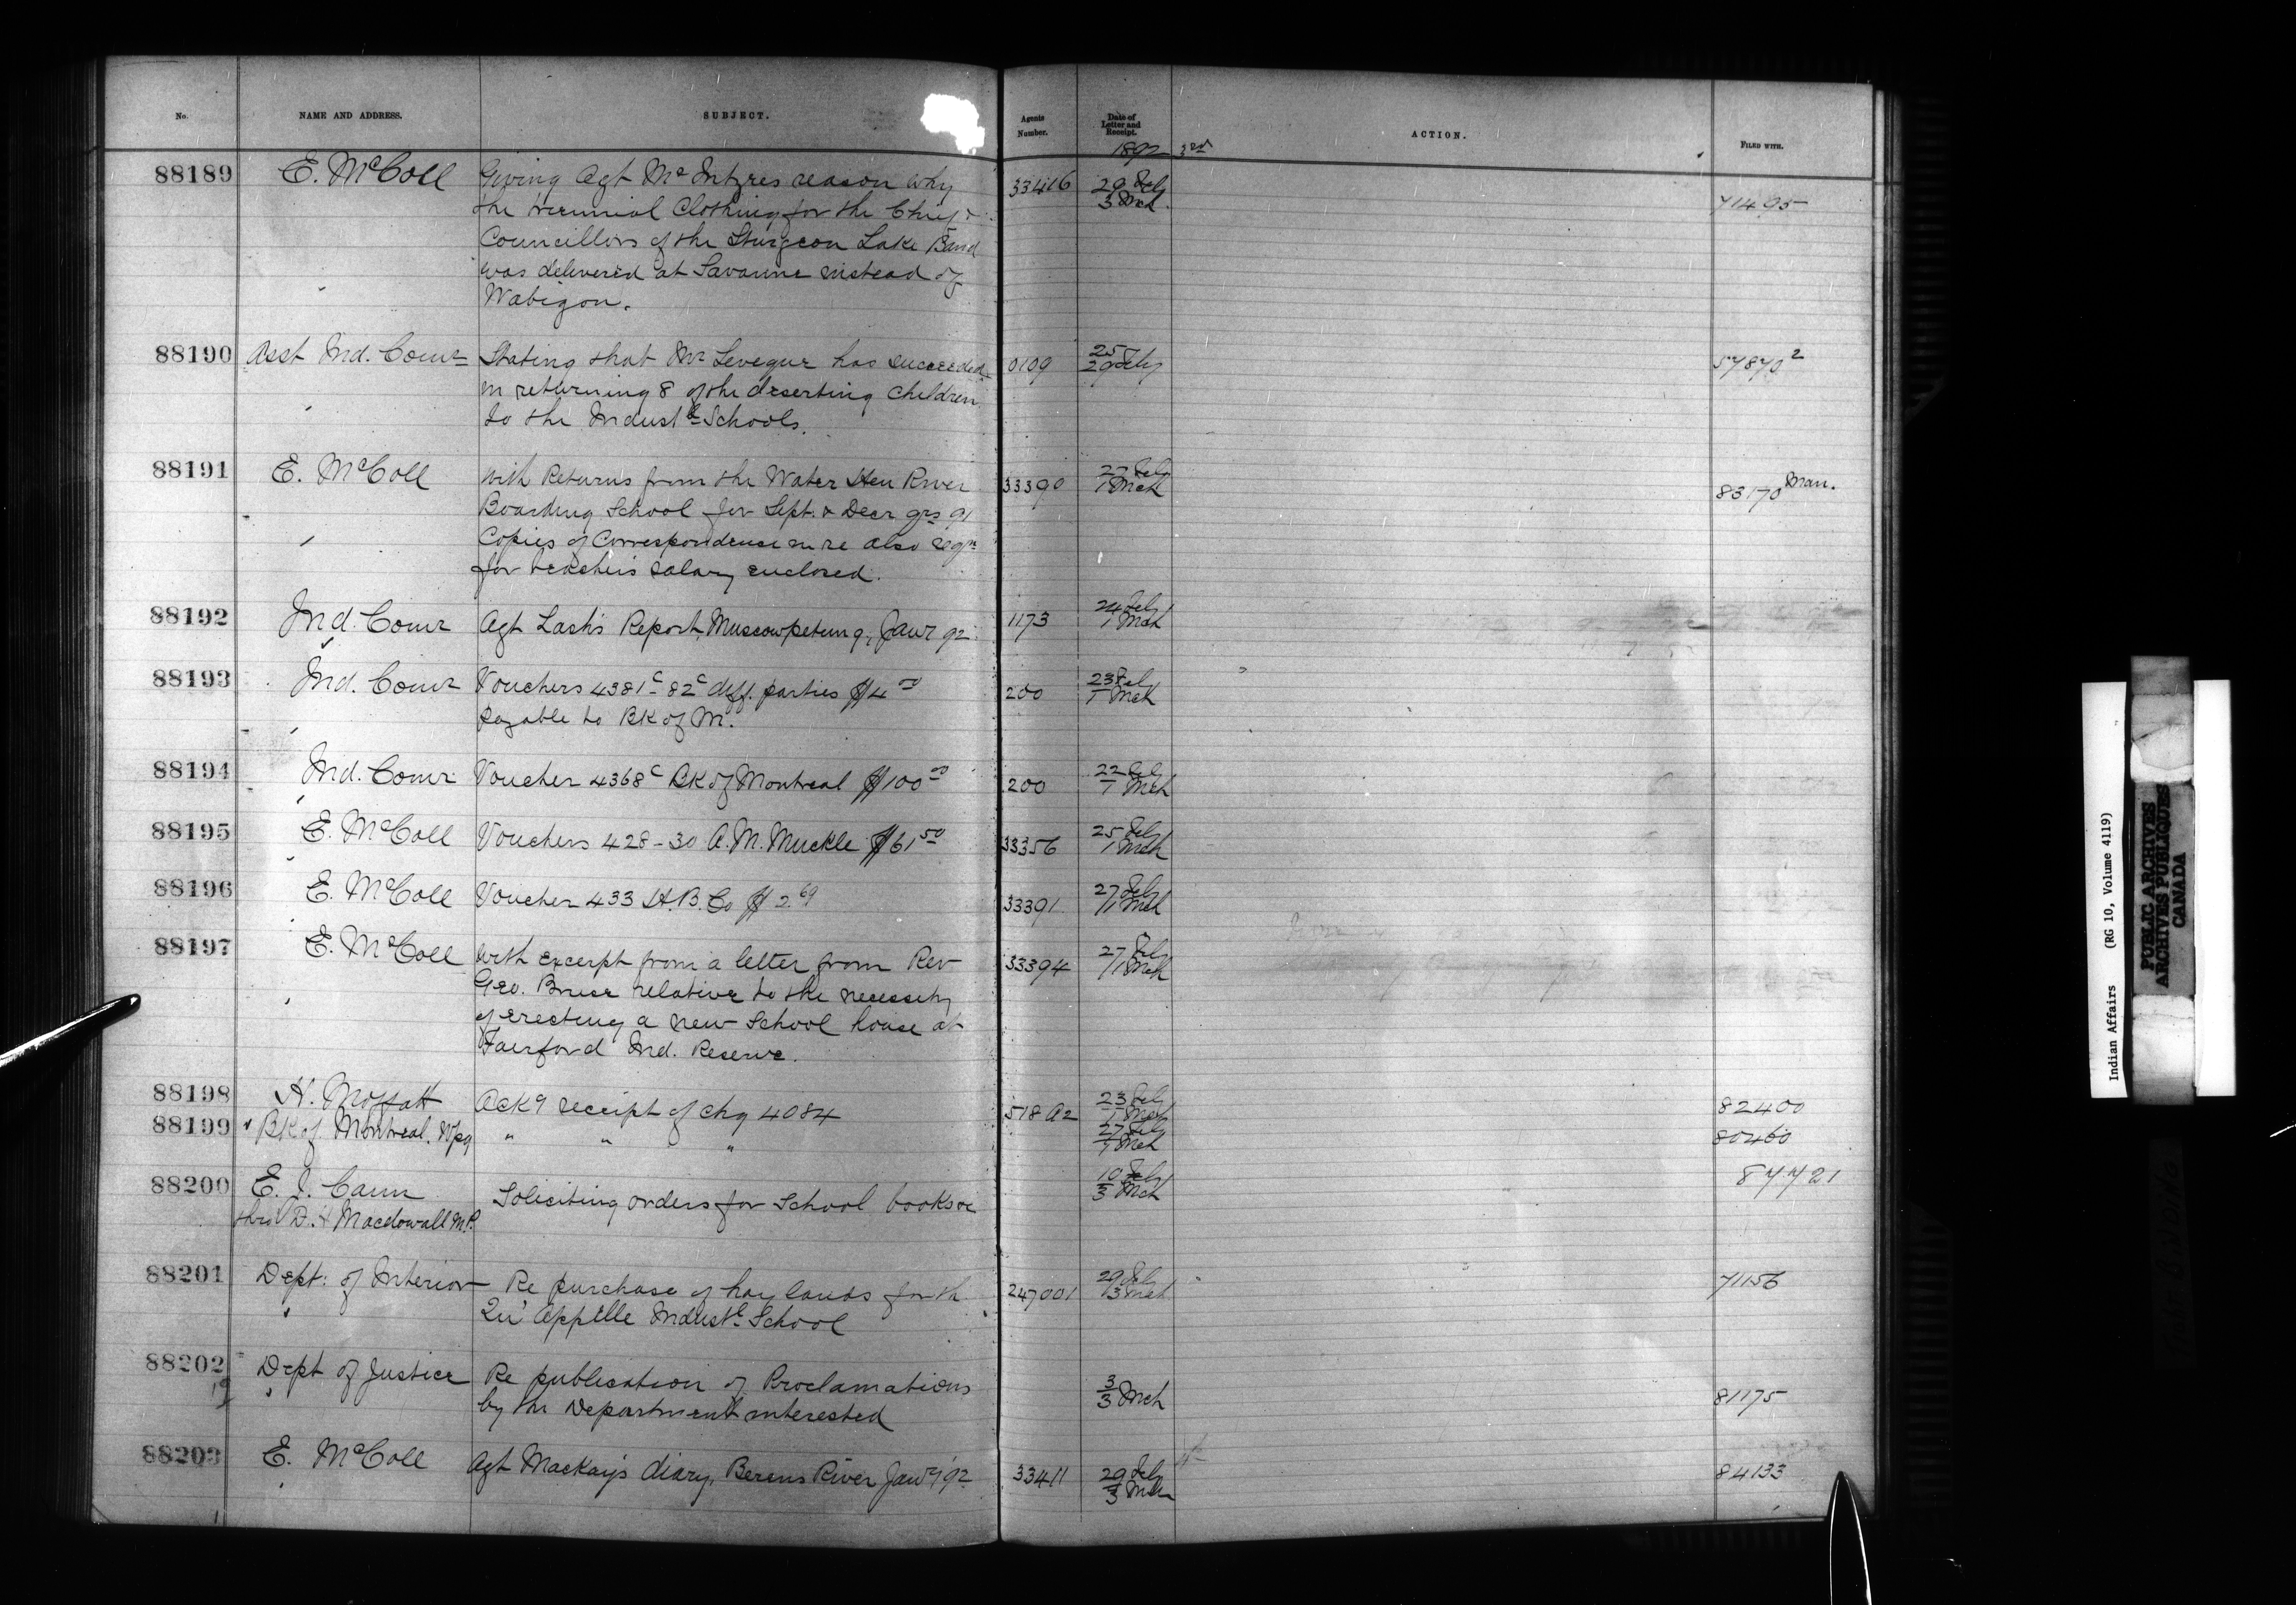 No. NAME AND ADDRESS. SUBJECT. Agents Number. Date of Letter and Receipt. ACTION. FILED WITH.
1892 3rd
88189 E. McColl Giving Agt McIntyres reason why 33416 29 Feby
the triennial Clothing for the Chief & 3 Mch 71495
Councillors of the Sturgeon Lake Band
was delivered at Savanne instead of
Wabigon.
88190 Asst Ind. Comr Stating that Mr Levegur has succeeded 0109 25 57870 2
in returning 8 of the deserting children 29 Feby
to the Industl Schools.
88191 E. McColl With Returns from the Water Hen River 33390 27 Feby 83170 Man.
Boarding School for Sept. & Decr qrs 91 1 Mch
Copies of Correspondence in re also reqn
for teacher's salary enclosed.
88192 Ind. Comr Agt Lash's Report, Muscowpetung, Jany 92 1173 24 Feby
1 Mch
88193 Ind. Comr Vouchers 4381c 82c diff. parties $4 00 200 23 Feby
payable to BK of M. 1 Mch
88194 Ind. Comr Voucher 4368c BK of Montreal $100 00 200 22 Feby
1 Mch
88195 E. McColl Vouchers 428-30 A.M. Muckle $61 50 33356 25 Feby
1 Mch
88196 E. McColl Voucher 433 H.B. Co $2.69 33391 27 Feby
1 Mch
88197 E. McColl With excerpt from a letter from Rev 33394 27 Feby
Geo. Bruce relative to the necessity 1 Mch
of erecting a new School house at
Fairford Ind. Reserve.
88198 H. Moffatt Ackg receipt of chq 4084 518 A2 23 Feby 82400
1 Mch
88199 BK of Montreal, Wpg " " " 27 Feby 80460
1 Mch
88200 E. J. Cann Soliciting orders for School books &c 10 Feby 87721
thro' D.H Macdowall M.P. 3 Mch
88201 Dept: of Interior Re purchase of hay lands for th 247001 29 Feby 71156
Qu'Appelle Industl School 3 Mch
88202 Dept of Justice Re publication of Proclamations 3 81175
19 by the Department interested 3 Mch
88203 E. McColl Agt Mackay's diary, Berens River Jany '92 33411 29 Feby 84133
3 Mch
Indian Affairs (RG 10, Volume 4119)
PUBLIC ARCHIVES
ARCHIVES PUBLIQUES
CANADA